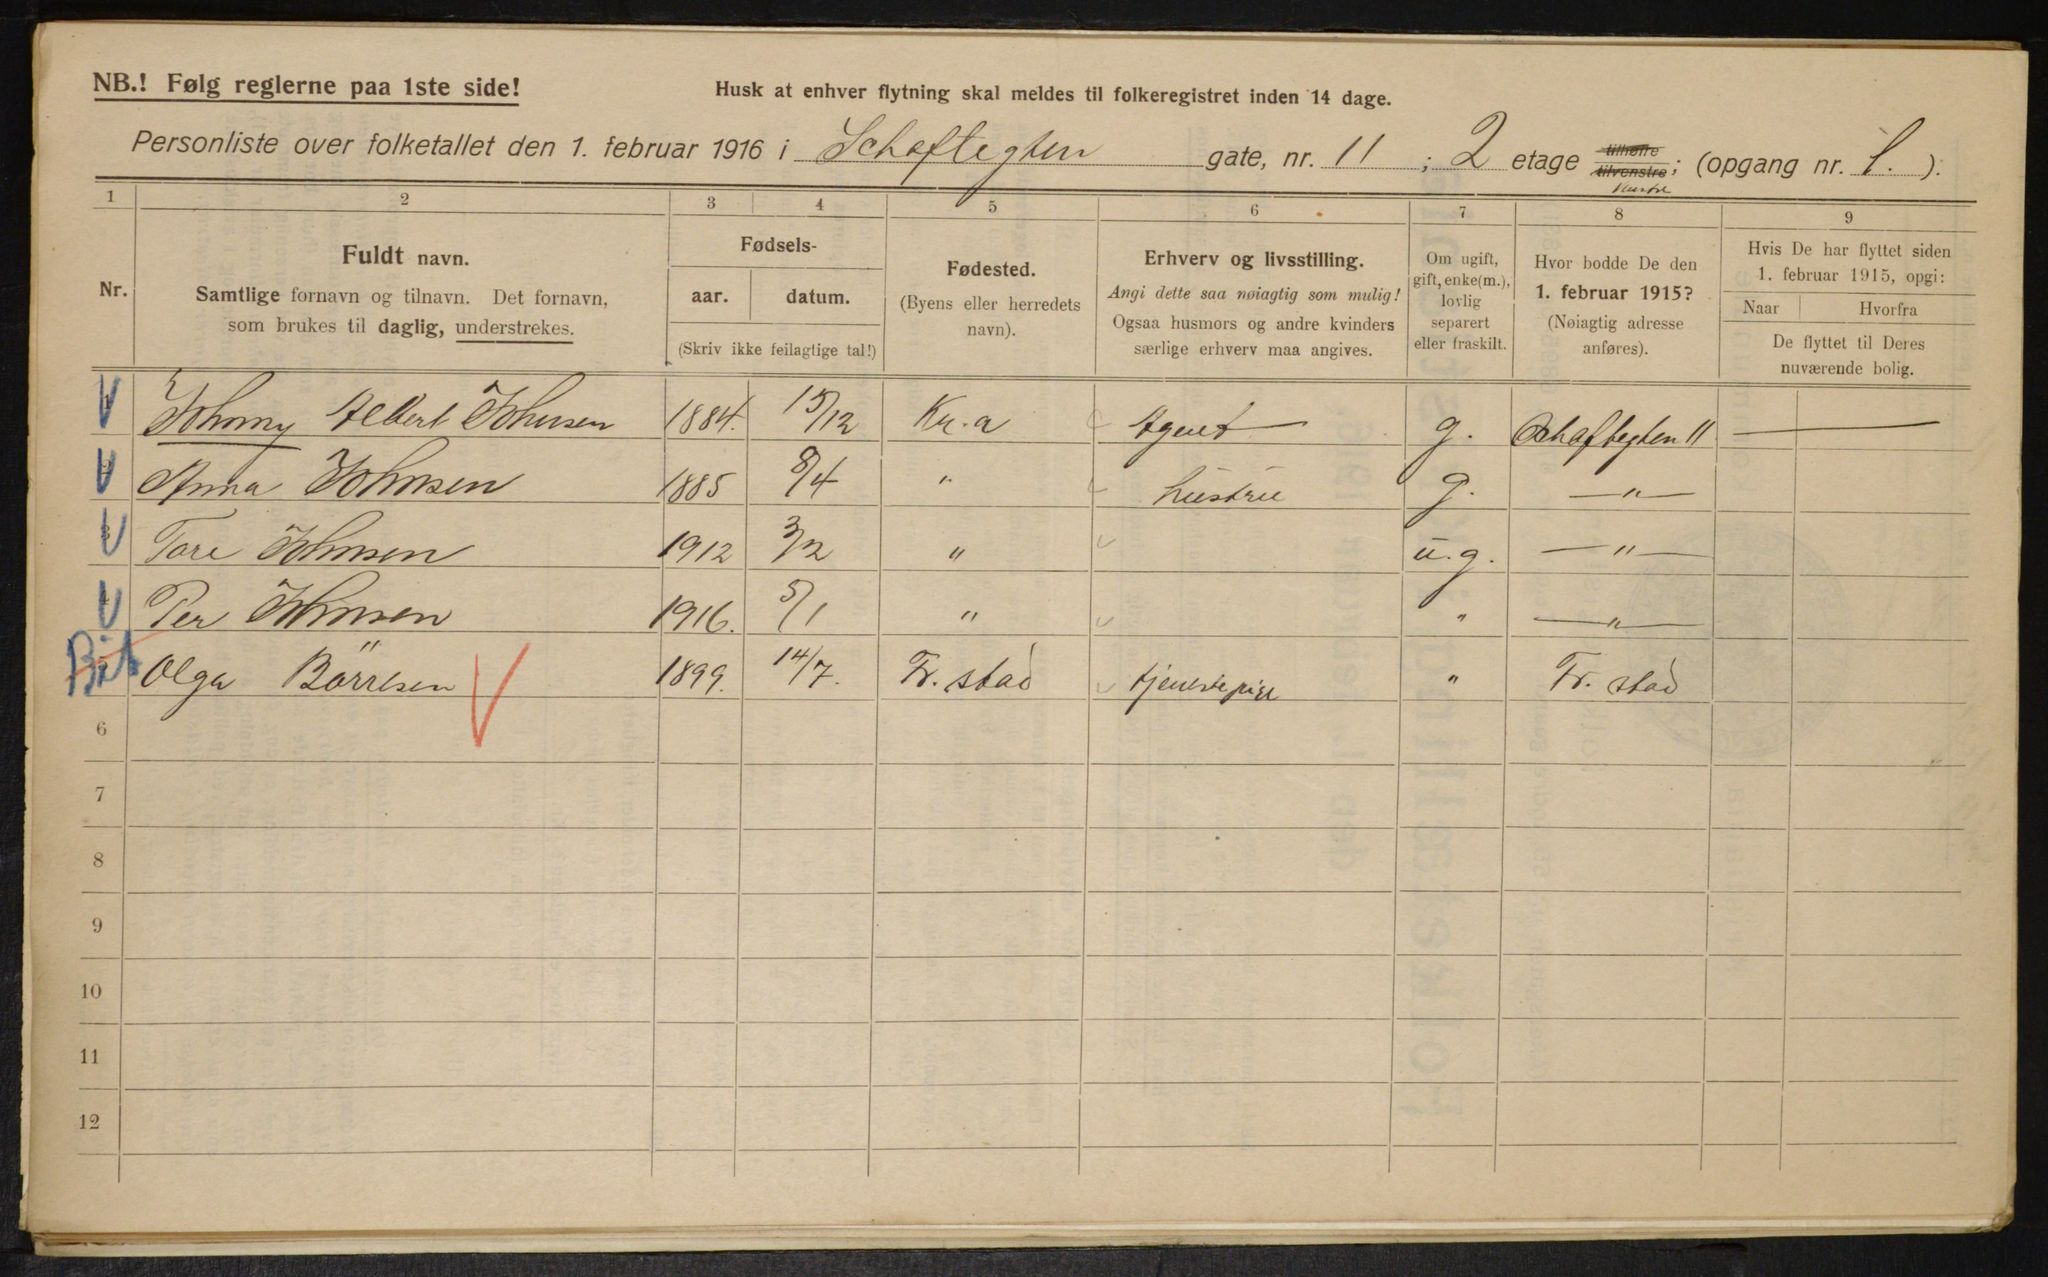 NB.! Følg reglerne paa 1ste side!
Husk at enhver flytning skal meldes til folkeregistret inden 14 dage.
Personliste over folketallet den 1. februar 1916 i Schafteløkken gate, nr. 11 ; 2 etage tilhøire tilvenstre; (opgang nr. 1. ).
1 2 3 4 5 6 7 8 9
Nr.
Fuldt navn.
Samtlige fornavn og tilnavn. Det fornavn,
som brukes til daglig, understrekes.
Fødsels-
aar. datum.
(Skriv ikke feilagtige tal!)
Fødested.
(Byens eller herredets
navn).
Erhverv og livsstilling.
Angi dette saa nøiagtig som mulig!
Ogsaa husmors og andre kvinders
særlige erhverv maa angives.
Om ugift,
gift, enke(m.),
lovlig
separert
eller fraskilt.
Hvor bodde De den
1. februar 1915?
(Nøiagtig adresse
anføres).
Hvis De har flyttet siden
1. februar 1915, opgi:
Naar Hvorfra
De flyttet til Deres
nuværende bolig.
Johnny Albert Johnsen 1884. 15/12 Kr.a Agent g. 11
Anna Johnsen 1885 8/4 " hustru g. "
Tore Johnsen 1912 3/2 " u.g. "
Per Johnsen 1916. 5/1 " " "
Olga Börresen 1899. 14/7. Fr. stad tjenestepige " Fr. stad
6
7
8
9
10
11
12